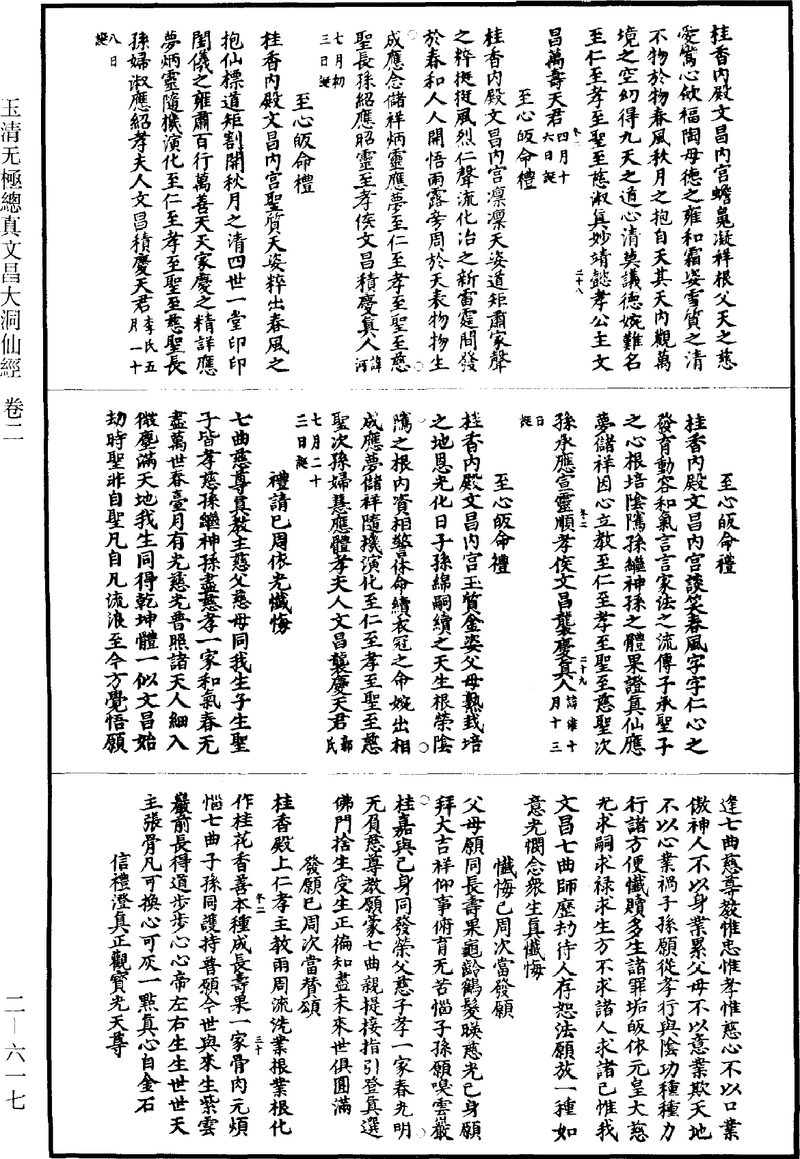 桂香內殿文昌內宮蟾㲋凝祥根父天之慈
愛鸞心欽福陶母德之雍和霜姿雪質之清
不物於物春風秋月之抱自天其天內觀萬
境之空幻得九天之道心清英議德婉難名
至仁至孝至聖至慈淑真妙靖懿孝公主文
昌萬壽天君四月十六日誕
至心皈命禮
桂香內殿文昌內宮凛凛天姿道矩肅家聲
之粹挺挺風烈仁聲流化治之新雷霆間發
於春和人人開悟雨露旁周於天表物物生
成應念儲祥炳靈應夢至仁至孝至聖至慈
聖長孫紹應昭靈至孝侯文昌積慶真人諱河
七月初三日誕
至心皈命禮
桂香內殿文昌內宮聖質天姿粹出春風之
抱仙標道矩割開秋月之清四世一堂印印
閨儀之雍肅百行萬善天天家慶之精詳應
夢炳靈隨機演化至仁至孝至聖至慈聖長
孫婦淑應紹孝夫人文昌積慶天君李氏五月一十
八日誕
至心皈命禮
桂香內殿文昌內宮談笑春風字字仁心之
發育動容和氣言言家法之流傳子承聖子
之心根培陰騭孫繼神孫之體果證真仙應
夢儲祥因心立教至仁至孝至聖至慈聖次
孫承應宣靈順孝侯文昌襲慶真人諱維十月十三
日誕
至心皈命禮
桂香內殿文昌內宮玉質金姿父母熟栽培
之地恩光化日子孫綿嗣續之天生根榮陰
騭之根內資相警休命續衣冠之命婉出相
成應夢儲祥隨機演化至仁至孝至聖至慈
聖次孫婦慧應體孝夫人文昌襲慶天君郭氏
七月二十三日誕
禮請已周依光懺悔
七曲慈尊真教主慈父慈母同我生子生聖
子皆孝慈孫繼神孫盡慈孝一家和氣春无
盡萬世春臺月有光慈光普照諸天人細入
微塵滿天地我生同得乾坤體一似文昌始
劫時聖非自聖凡自凡流浪至今方覺悟願
逢七曲慈尊教惟忠惟孝惟慈心不以口業
傲神人不以身業累父母不以意業欺天地
不以心業禍子孫願從孝行與陰功種種力
行諸方便懺贖多生諸罪垢皈依元皇大慈
光求嗣求祿求生方不求諸人求諸己惟我
文昌七曲師歷劫待人存恕法願放一種如
意光憫念衆生真懺悔
懺悔已周次當發願
父母願同長壽果龜齡鶴髮睇慈光已身願
拜大吉祥仰事俯育无苦惱子孫願嗅雲巖
桂嘉與已身同發榮父慈子孝一家春光明
无負慈尊教願蒙七曲親提接指引登真選
佛門捨生受生正徧知盡未來世俱圓滿
發願已周次當替頌
桂香殿上仁孝主教雨周流洗業根業根化
作桂花香善本種成長壽果一家骨肉元煩
惱七曲子孫同護持普願今世與來生紫雲
巖前長得道步步心心帝左右生生世世天
主張骨凡可換心可灰一點真心自金石
信禮澄真正觀寶光天尊
卷二
二十八
卷二
二十九
卷二
三十
玉清无極總真文昌大洞仙經 卷二
二—六一七